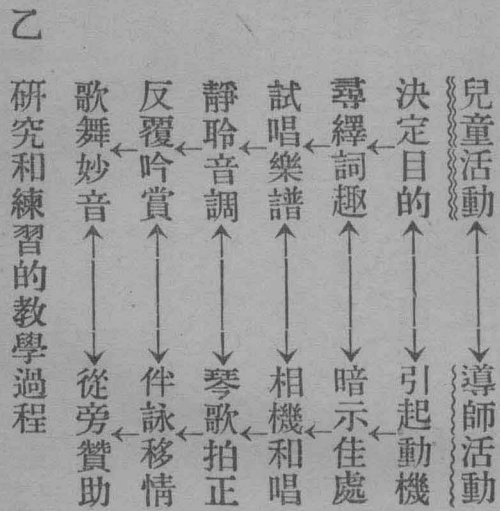 兒童活動 ↔ 導師活動
決定目的 ↔ 引起動機
尋繹詞趣 ↔ 暗示佳處
試唱樂譜 ↔ 相機和唱
靜聆音調 ↔ 琴歌拍正
反覆吟賞 ↔ 伴詠移情
歌舞妙音 ↔ 從旁贊助
乙 研究和練習的教學過程